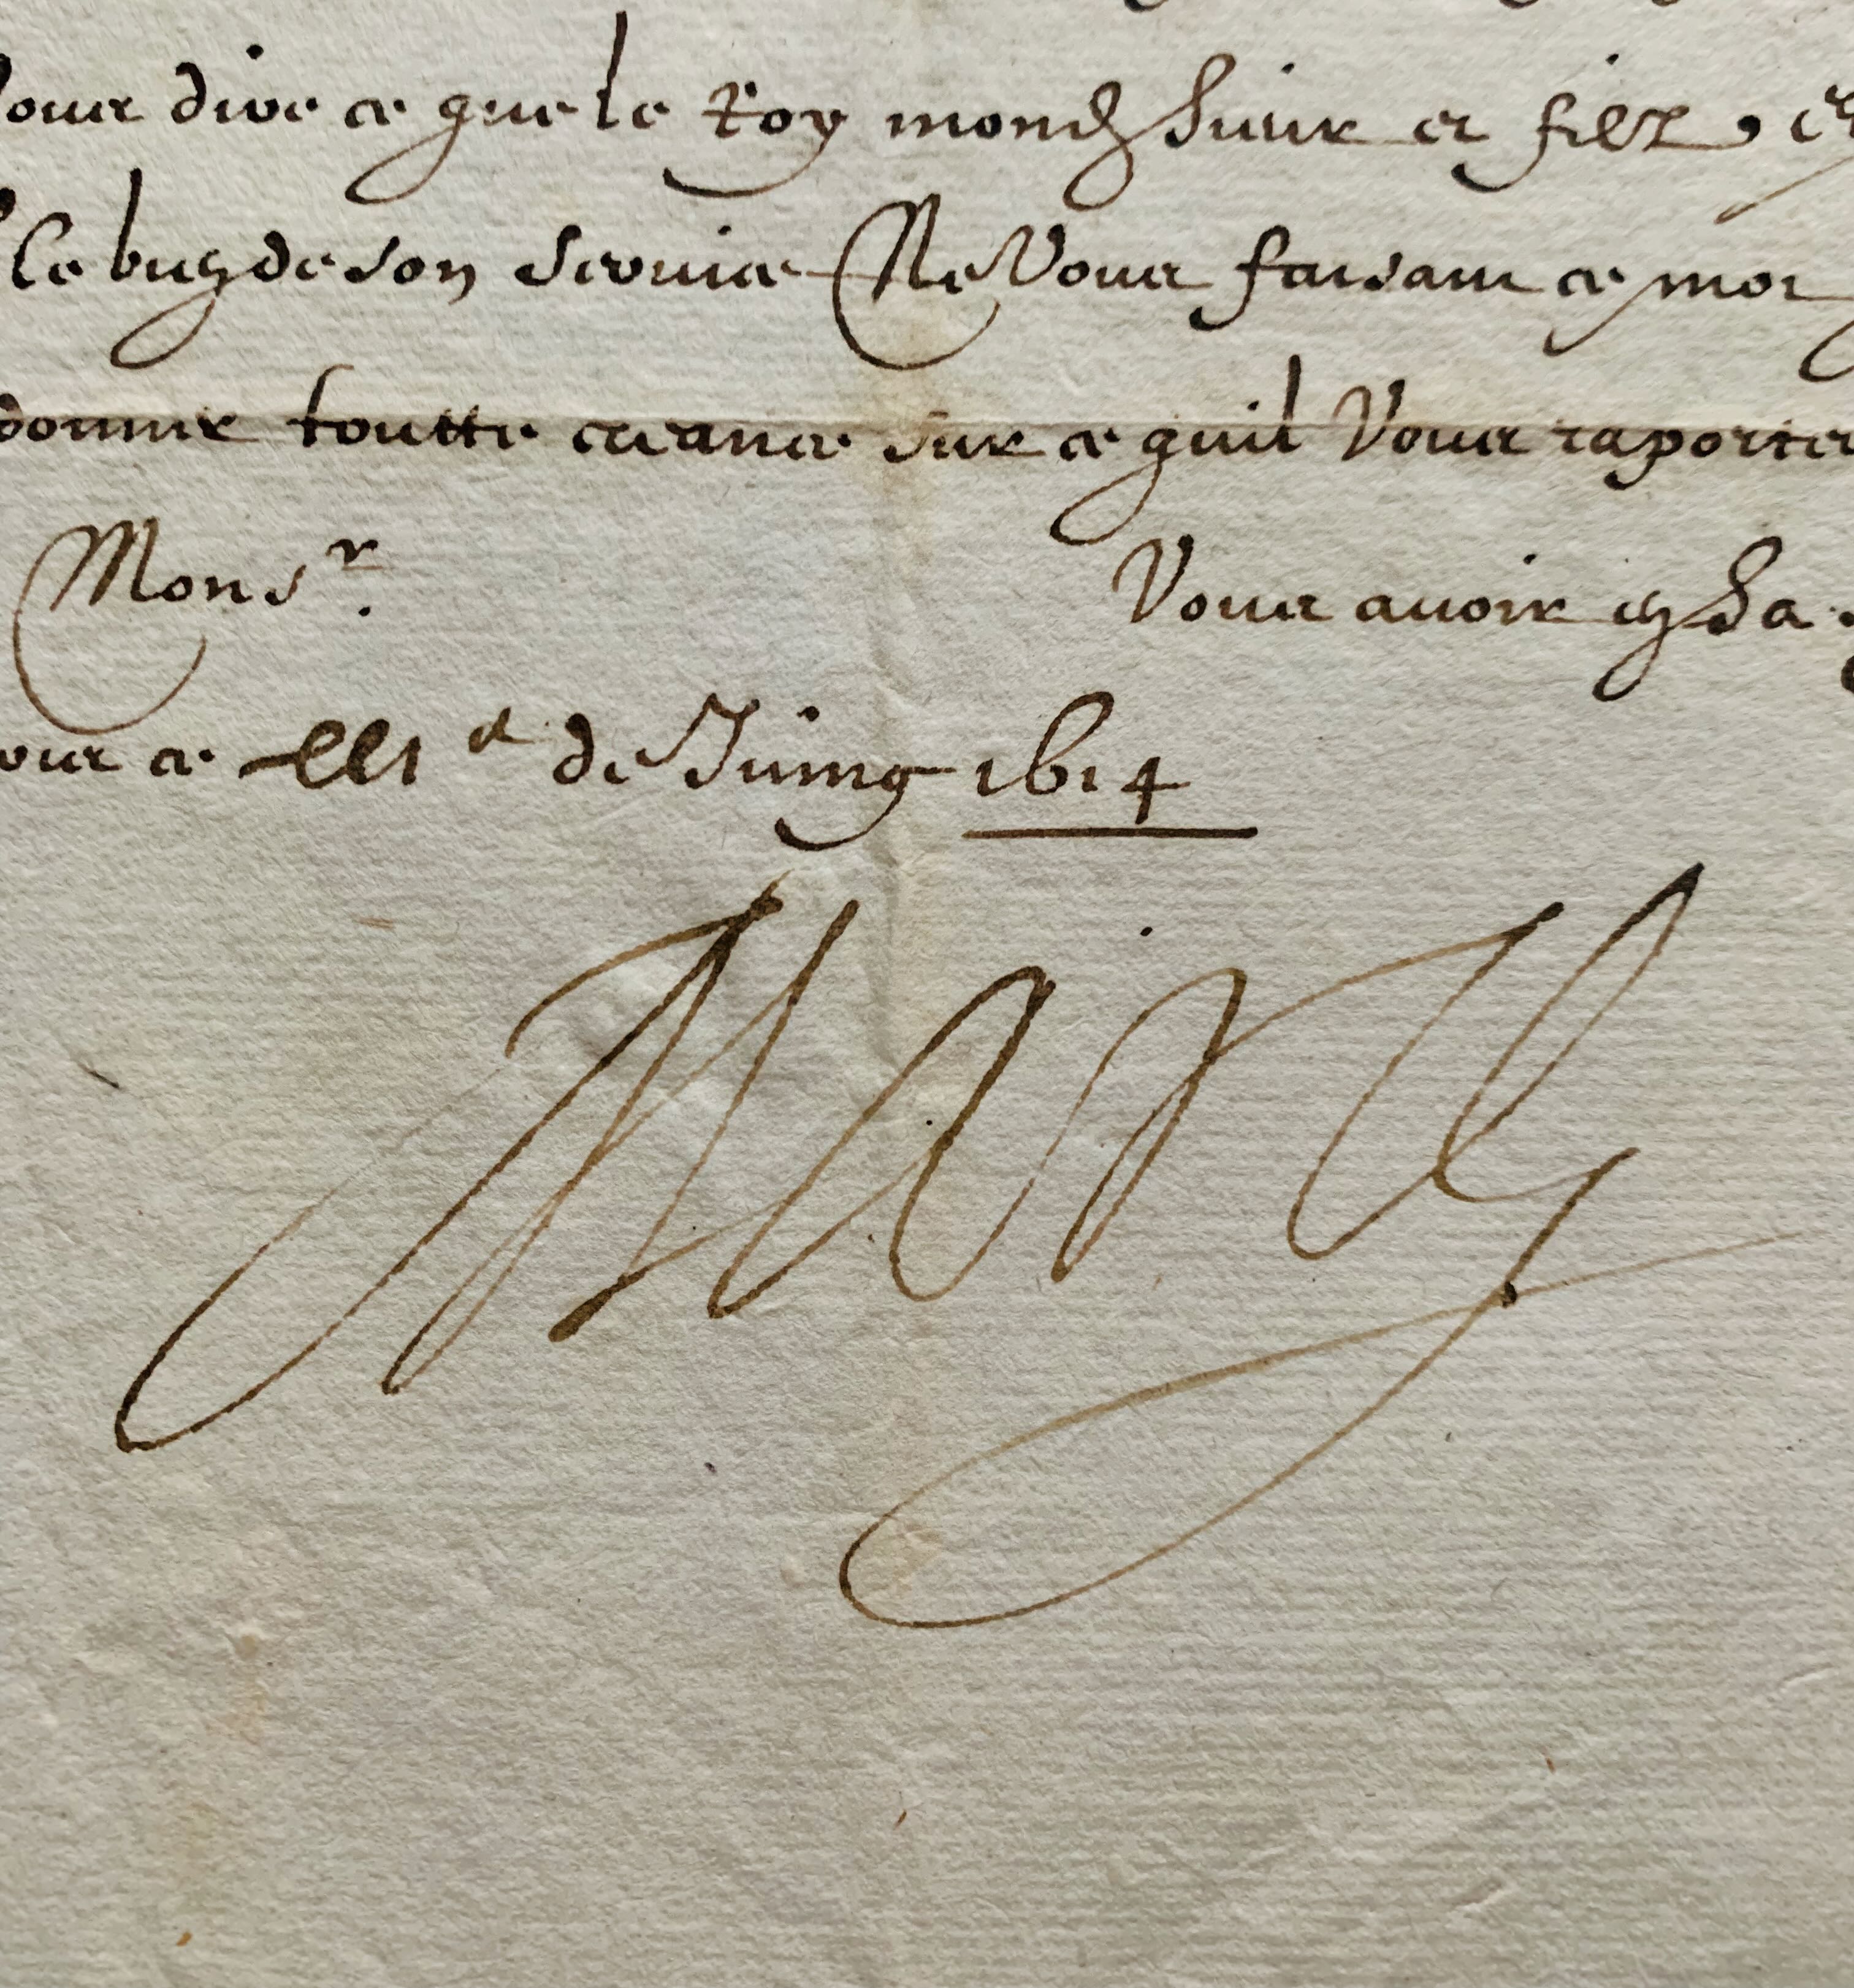 vous dire ce que le Roy monsr Sieur et filz, et
le bien de son service Ne Vous faisant ce mot
donner toutte creance sur ce quil Vous raporter
Monsr. Vous avoir en Sa
jour ce de Juing 1614
Marie